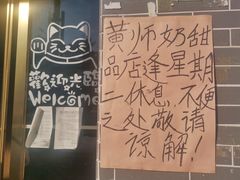 歡迎光臨
Welcome
黄师奶甜
品店逢星期
二休息,不便
之处敬请
谅解!